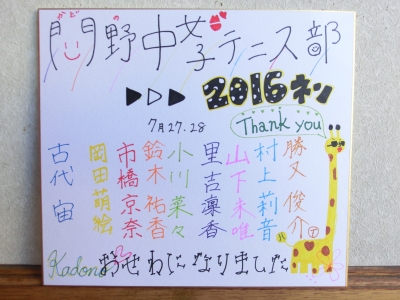 かど
門野中女子テニス部
▶▷▶ 2016ネン
7月27.28
Thank you
勝又 俊介
村上 莉音
山下 未唯
里吉 凛香
小川 菜々
鈴木 祐香
市橋 京奈
岡田 萌絵
古代 宙
Kadono
おせわになりました